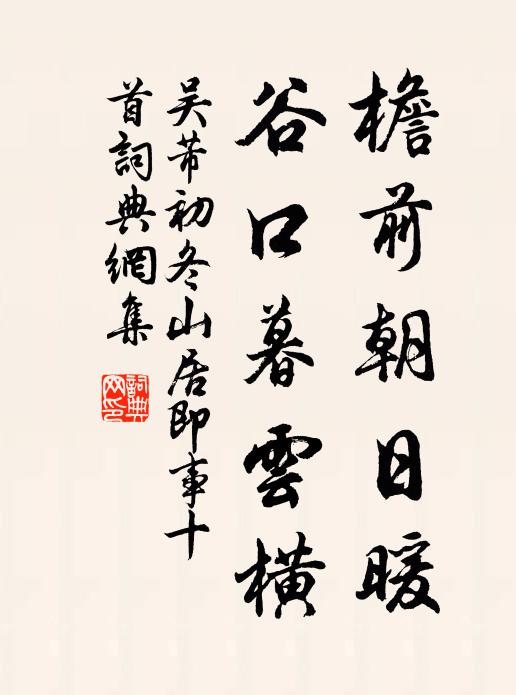 檐前朝日暖
谷口暮雲橫
吳芾初冬山居即事十
首詞典網集
詞典
网印